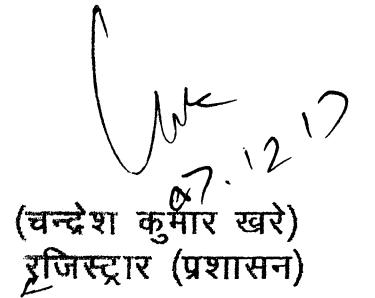 07.12.17
(चन्द्रेश कुमार खरे)
रजिस्ट्रार (प्रशासन)